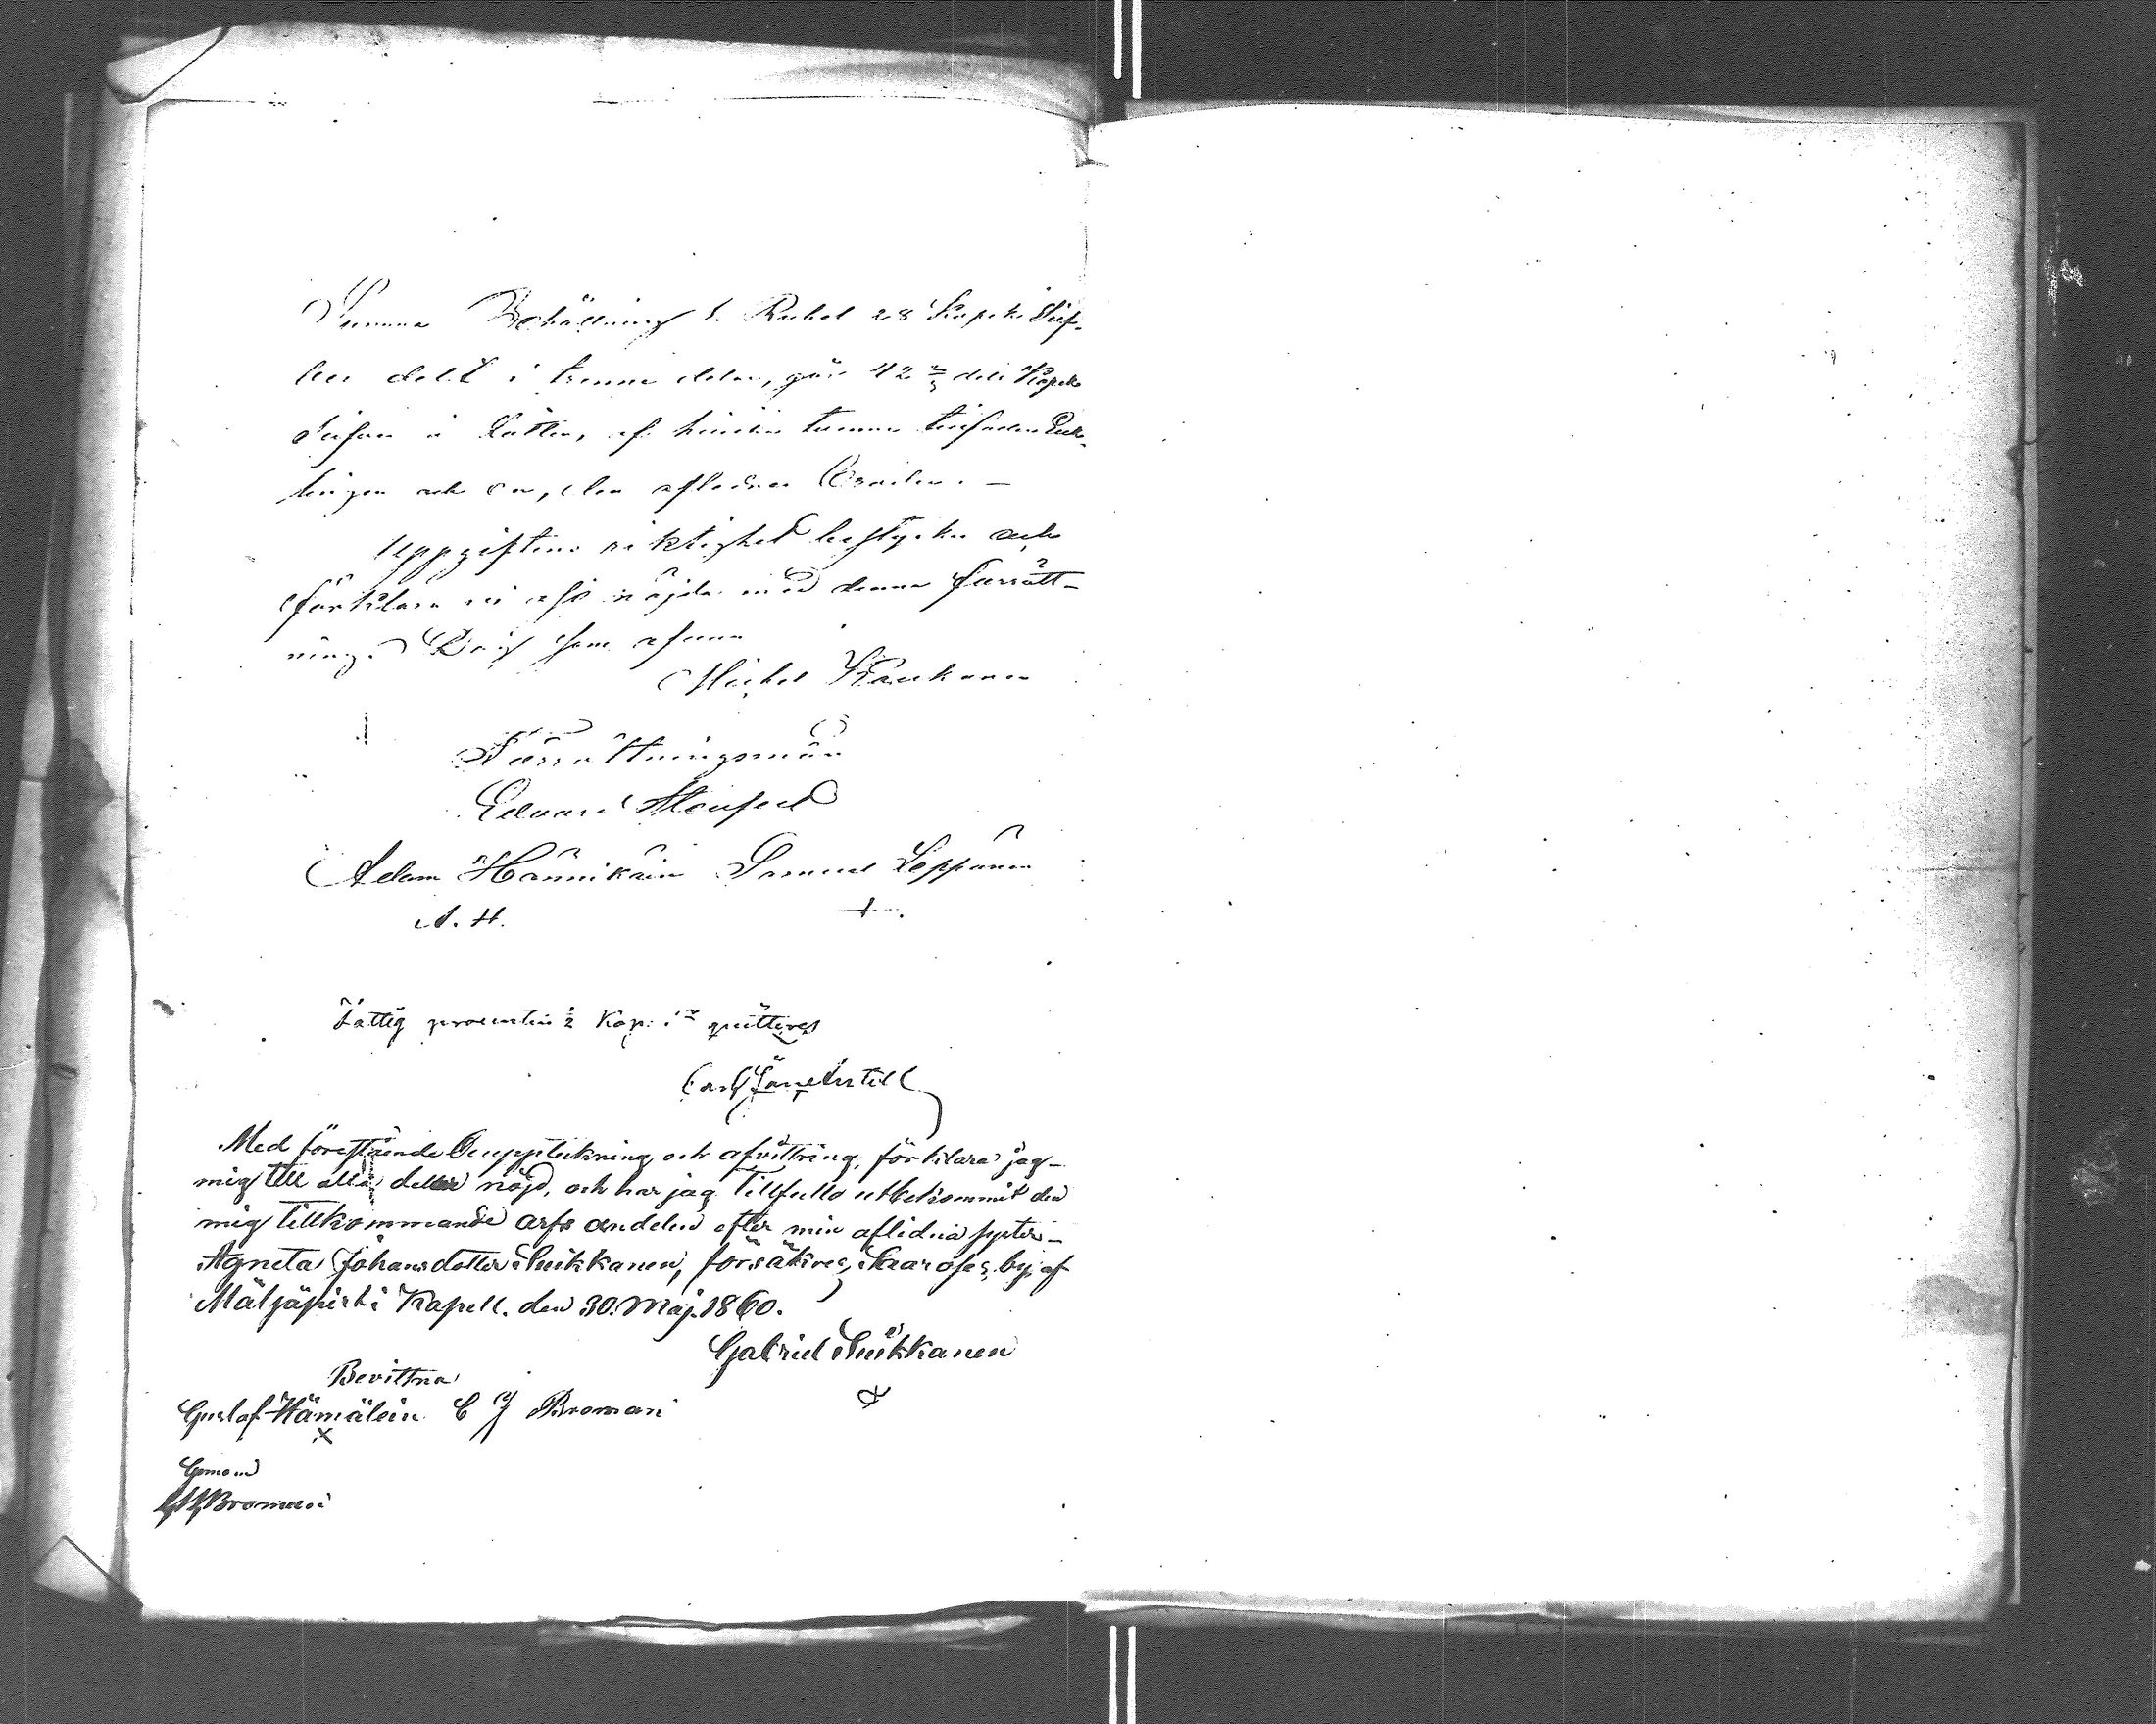 Summa Behållning 1. Rubel 28 Kopek Silf-
ver delt i trenne delar, gör 42 2/3 dels Kopek
Silfver i Lotten, af hvilka
och en, den aflednes
Uppgiftens riktighet bestyrka och
förklara vi oss nöjda med denna förrätt-
ning. Dag som ofvan
Michel Kaukanen
Förrättningsmän
Edvard
Adam Hännikäin Samuel Leppänen
A. H. +
Fattig procenten ½ Kop: Sr quitteras
Med förestående Bouppteckning och afvittring, förklarar jag
mig till alla delar nöjd, och har jag tillfullo utbekommit den
mig tillkommande arfs andelen efter min aflidna syster
Agneta Johansdotter Suikkanen, försäkres, by af
Mäljäpirti Kapell. den 30. Maj. 1860.
Gabriel Suikkanen
Bevittna
Gustaf Hämäläin C J Broman
x
Broman